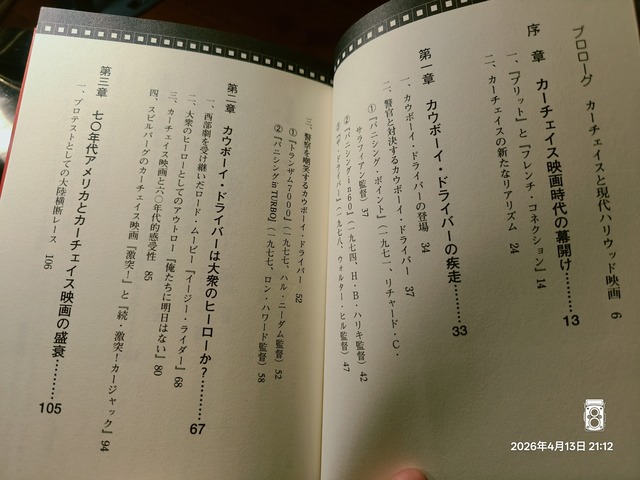 プロローグ　カーチェイスと現代ハリウッド映画　6
序　章　カーチェイス映画時代の幕開け………13
一、『ブリット』と『フレンチ・コネクション』　14
二、カーチェイスの新たなリアリズム　24
第一章　カウボーイ・ドライバーの疾走………33
一、カウボーイ・ドライバーの登場　34
二、警官と対決するカウボーイ・ドライバー　37
①『バニシング・ポイント』（一九七一、リチャード・C・
サラフィアン監督）37
②『バニシングin60』（一九七四、H・B・ハリキ監督）42
③『ザ・ドライバー』（一九七八、ウォルター・ヒル監督）47
三、警察を嘲笑するカウボーイ・ドライバー　52
①『トランザム7000』（一九七七、ハル・ニーダム監督）52
②『バニシングin TURBO』（一九七七、ロン・ハワード監督）58
第二章　カウボーイ・ドライバーは大衆のヒーローか？………67
一、西部劇を受け継いだロード・ムービー『イージー・ライダー』68
二、大衆のヒーローとしてのアウトロー『俺たちに明日はない』80
三、カーチェイス映画と六〇年代的感受性　85
四、スピルバーグのカーチェイス映画『激突！』と『続・激突！カージャック』94
第三章　七〇年代アメリカとカーチェイス映画の盛衰………105
一、プロテストとしての大陸横断レース　106
2026年4月13日 21:12